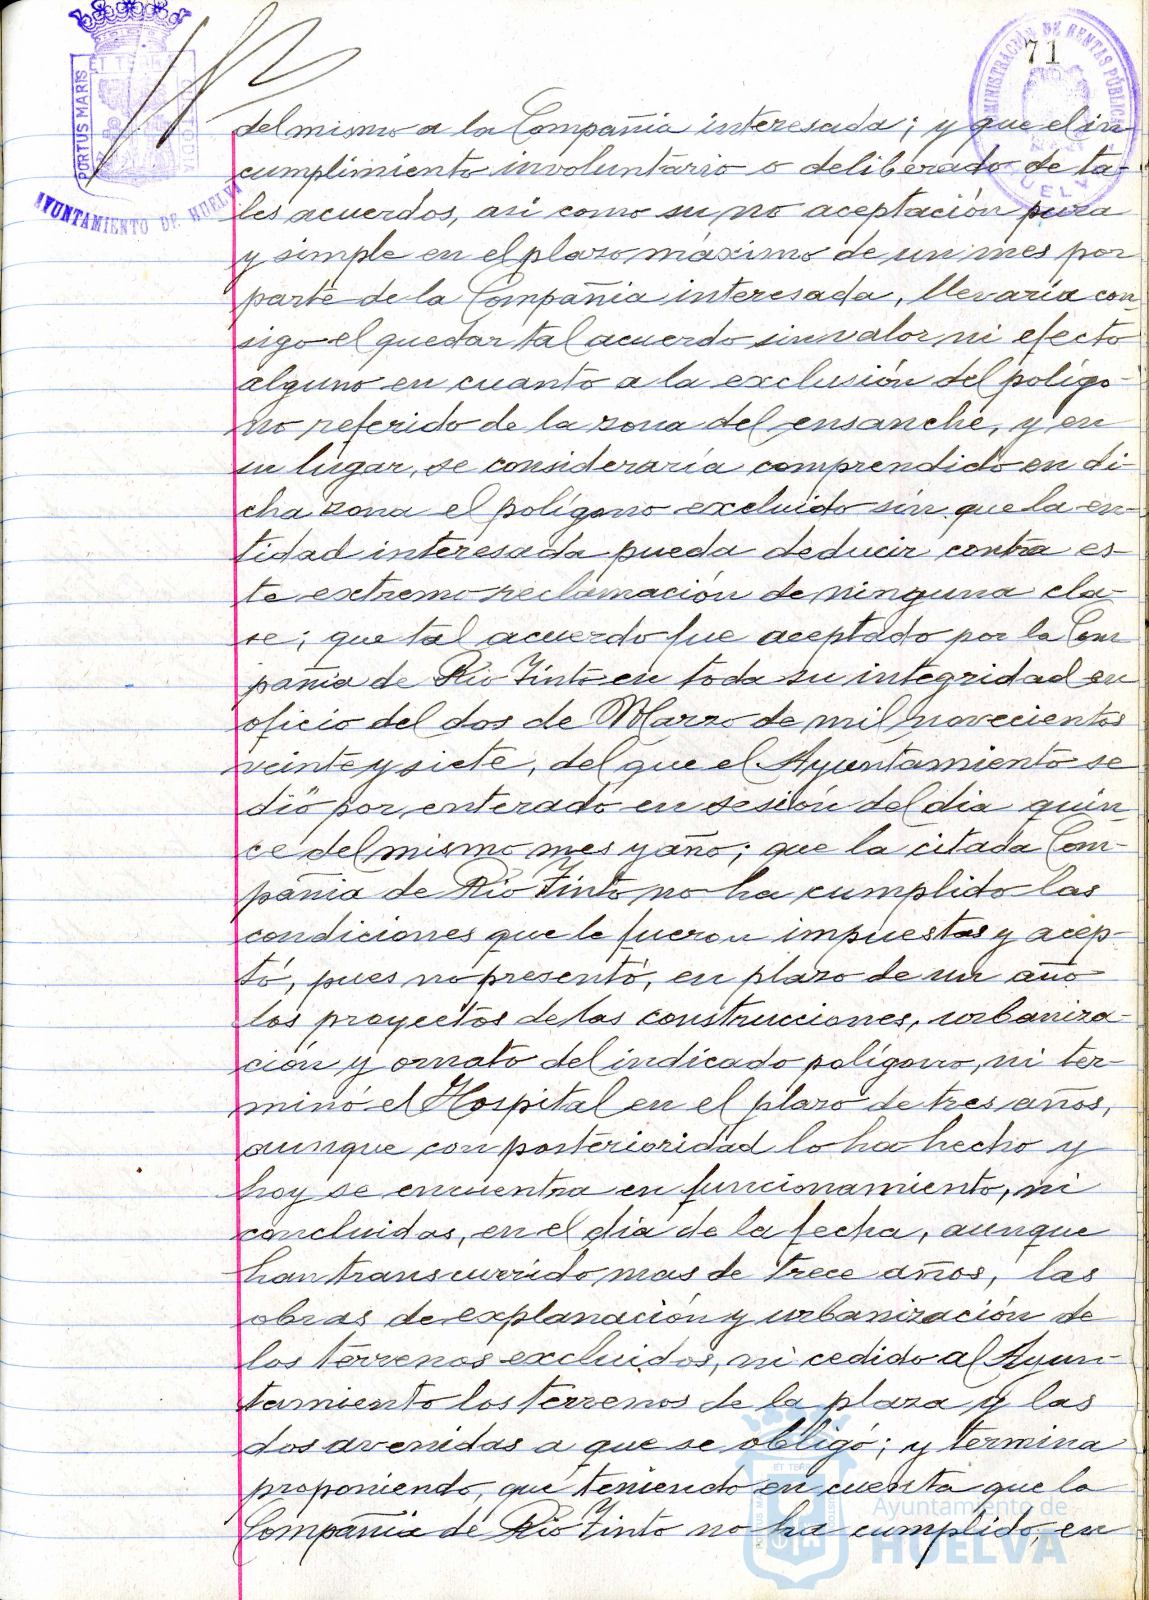 71
PORTUS MARIS
ET TERRÆ
CUSTODIA
AYUNTAMIENTO DE HUELVA
ADMINISTRACIÓN DE RENTAS PÚBLICAS
HUELVA
del mismo a la Compañia interesada; y que el in-
cumplimiento involuntario o deliberado de ta-
les acuerdos, asi como su no aceptación pura
y simple en el plazo máximo de un mes por
parte de la Compañia interesada, llevaría con-
sigo el quedar tal acuerdo sin valor ni efecto
alguno en cuanto a la exclusión del polígo-
no referido de la zona del ensanche, y en
su lugar, se consideraría comprendido en di-
cha zona el polígono excluido sin que la en-
tidad interesada pueda deducir contra es-
te extremo reclamación de ninguna cla-
se; que tal acuerdo fue aceptado por la Com
pañia de Rio Tinto en toda su integridad en
oficio del dos de Marzo de mil novecientos
veinte y siete, del que el Ayuntamiento se
dió por enterado en sesión del dia quin-
ce del mismo mes y año; que la citada Com-
pañia de Rio Tinto no ha cumplido las
condiciones que le fueron impuestas y acep-
tó, pues no presentó, en plazo de un año
los proyectos de las construcciones, urbaniza-
ción y ornato del indicado polígono, ni ter-
minó el Hospital en el plazo de tres años,
aunque con posterioridad lo ha hecho y
hoy se encuentra en funcionamiento, ni
concluidas, en el dia de la fecha, aunque
han transcurrido mas de trece años, las
obras de explanación y urbanización de
los terrenos excluidos, ni cedido al Ayun-
tamiento los terrenos de la plaza y las
dos avenidas a que se obligó; y termina
proponiendo, que teniendo en cuenta que la
Compañia de Rio Tinto no ha cumplido, en
Ayuntamiento de
HUELVA